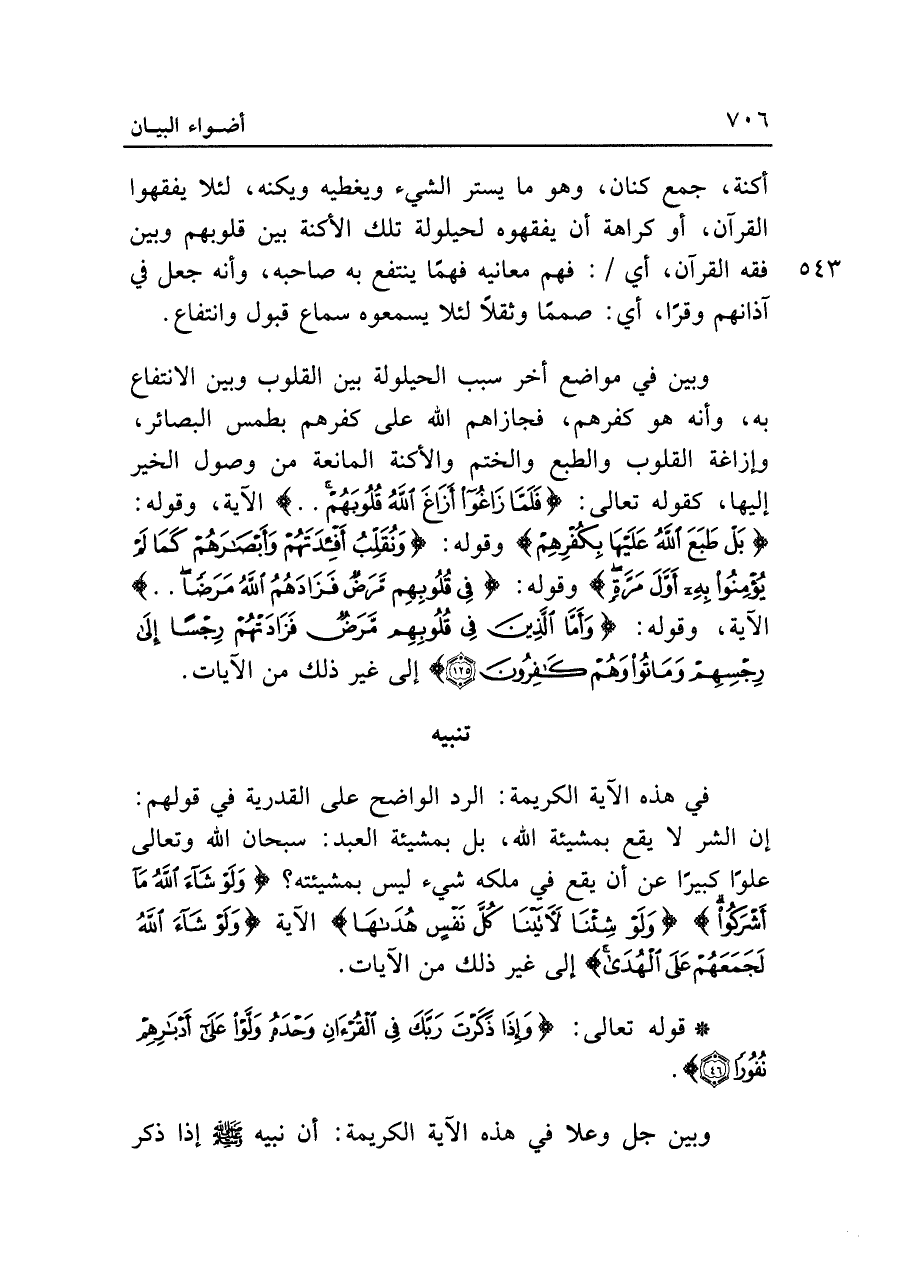 ٧٠٦ أضواء البيان
أكنة، جمع كنان، وهو ما يستر الشيء ويغطيه ويكنه، لئلا يفقهوا
القرآن، أو كراهة أن يفقهوه لحيلولة تلك الأكنة بين قلوبهم وبين
٥٤٣ فقه القرآن، أي /: فهم معانيه فهمًا ينتفع به صاحبه، وأنه جعل في
آذانهم وقرًا، أي: صممًا وثقلاً لئلا يسمعوه سماع قبول وانتفاع.
وبين في مواضع أخر سبب الحيلولة بين القلوب وبين الانتفاع
به، وأنه هو كفرهم، فجازاهم الله على كفرهم بطمس البصائر،
وإزاغة القلوب والطبع والختم والأكنة المانعة من وصول الخير
إليها، كقوله تعالى: ﴿فَلَمَّا زَاغُوٓا۟ أَزَاغَ ٱللَّهُ قُلُوبَهُمْۚ . .﴾ الآية، وقوله:
﴿بَلْ طَبَعَ ٱللَّهُ عَلَيْهَا بِكُفْرِهِمْ﴾ وقوله: ﴿وَنُقَلِّبُ أَفْـِٔدَتَهُمْ وَأَبْصَـٰرَهُمْ كَمَا لَمْ
يُؤْمِنُوا۟ بِهِۦٓ أَوَّلَ مَرَّةٍ﴾ وقوله: ﴿فِى قُلُوبِهِم مَّرَضٌ فَزَادَهُمُ ٱللَّهُ مَرَضًاۖ . .﴾
الآية، وقوله: ﴿وَأَمَّا ٱلَّذِينَ فِى قُلُوبِهِم مَّرَضٌ فَزَادَتْهُمْ رِجْسًا إِلَىٰ
رِجْسِهِمْ وَمَاتُوا۟ وَهُمْ كَـٰفِرُونَ ١٢٥﴾ إلى غير ذلك من الآيات.
تنبيه
في هذه الآية الكريمة: الرد الواضح على القدرية في قولهم:
إن الشر لا يقع بمشيئة الله، بل بمشيئة العبد: سبحان الله وتعالى
علوًا كبيرًا عن أن يقع في ملكه شيء ليس بمشيئته؟ ﴿وَلَوْ شَآءَ ٱللَّهُ مَآ
أَشْرَكُوا۟ۗ﴾ ﴿وَلَوْ شِئْنَا لَـَٔاتَيْنَا كُلَّ نَفْسٍ هُدَىٰهَا﴾ الآية ﴿وَلَوْ شَآءَ ٱللَّهُ
لَجَمَعَهُمْ عَلَى ٱلْهُدَىٰۚ﴾ إلى غير ذلك من الآيات.
* قوله تعالى: ﴿وَإِذَا ذَكَرْتَ رَبَّكَ فِى ٱلْقُرْءَانِ وَحْدَهُۥ وَلَّوْا۟ عَلَىٰٓ أَدْبَـٰرِهِمْ
نُفُورًا ٤٦﴾.
وبين جل وعلا في هذه الآية الكريمة: أن نبيه ﷺ إذا ذكر